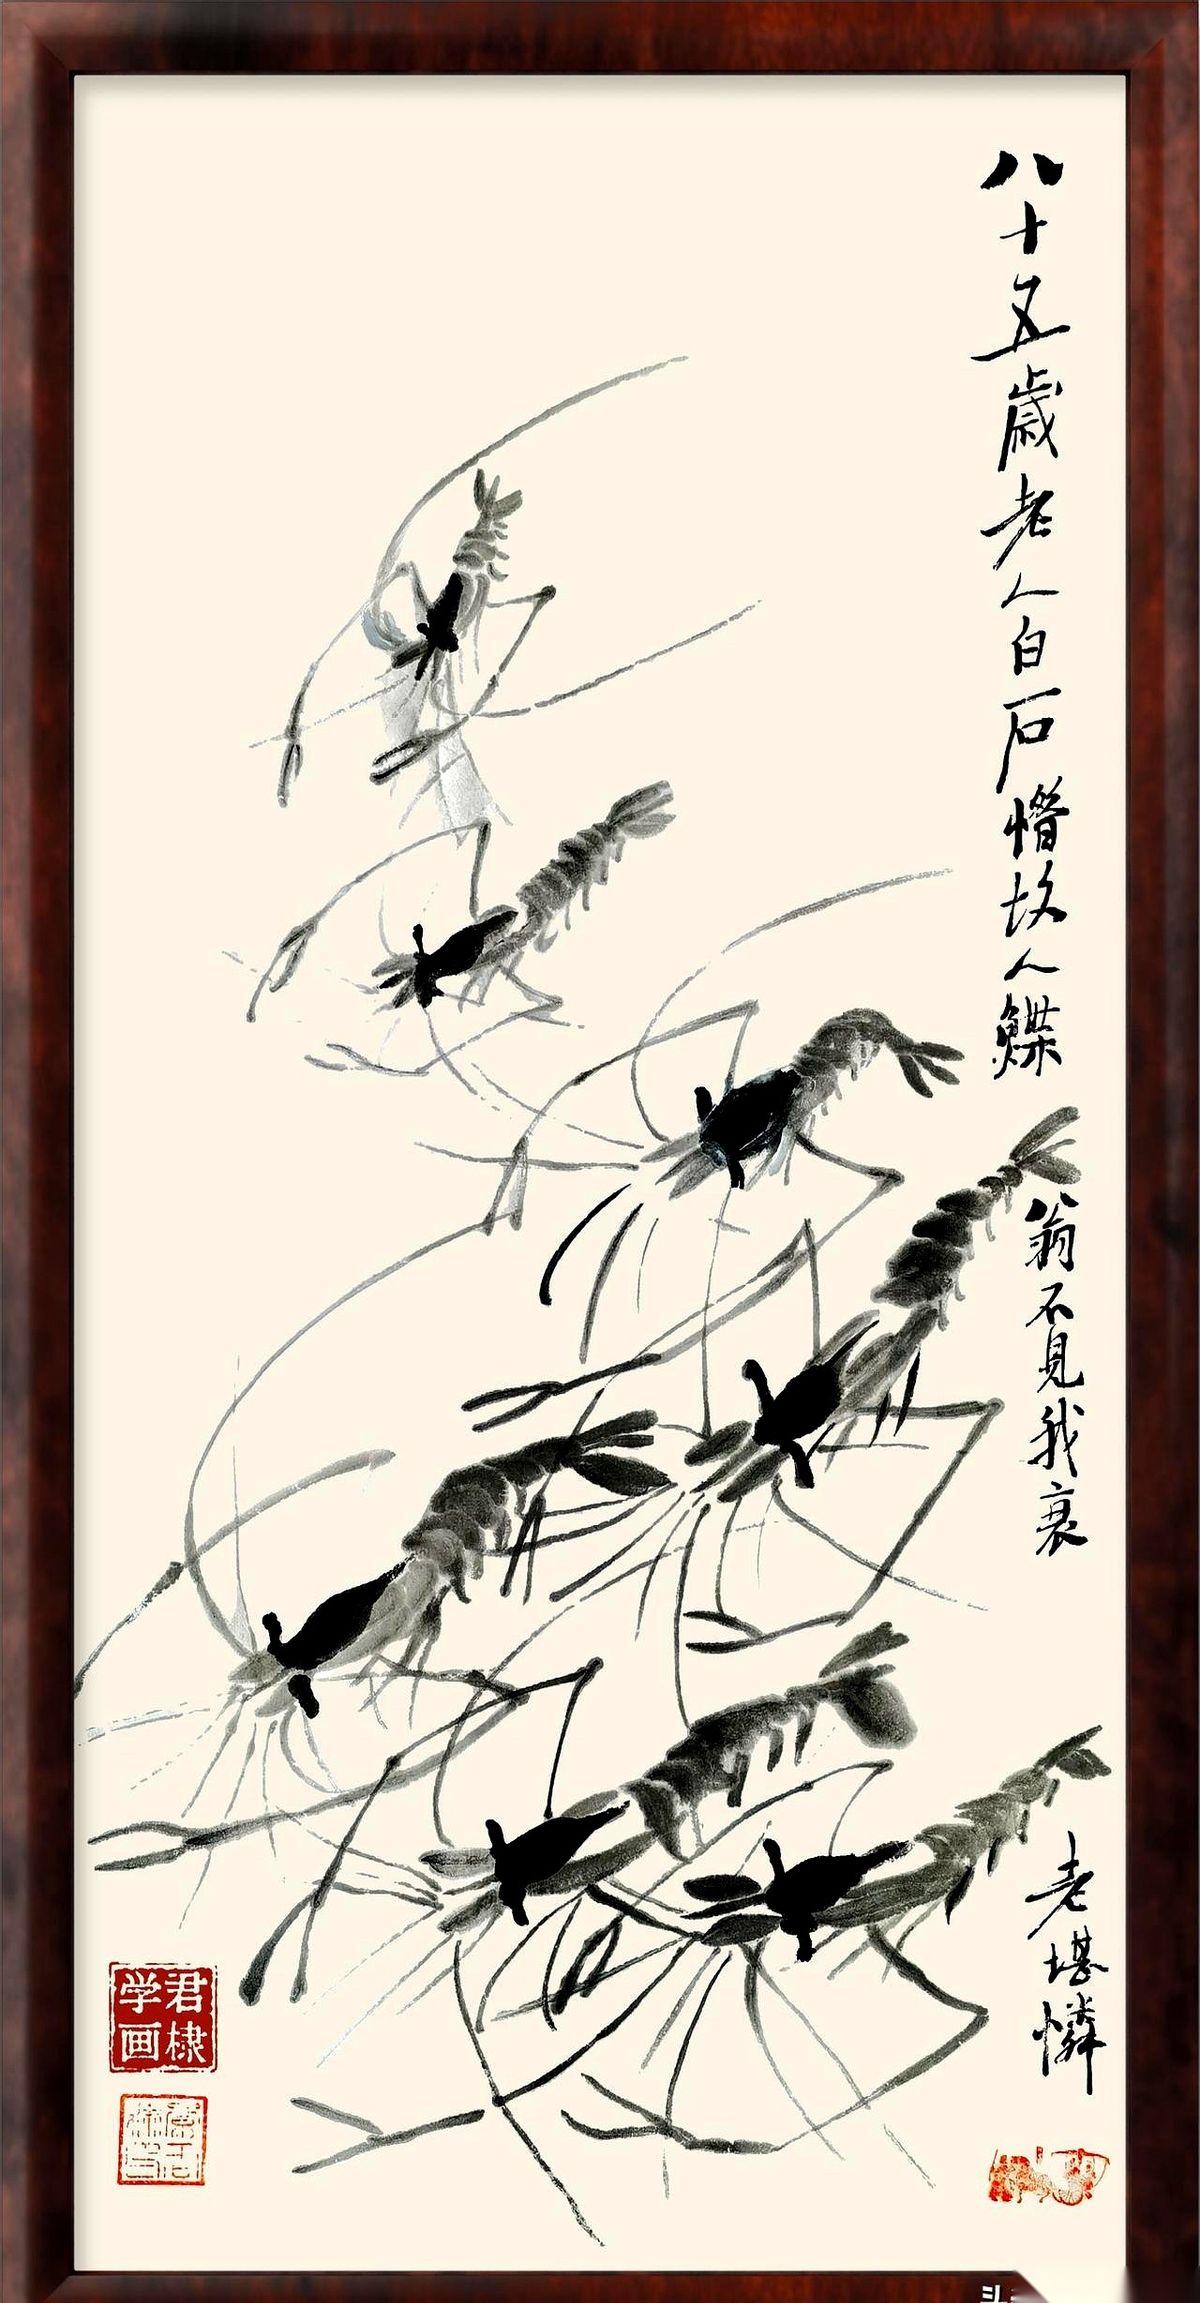 八十五歲老人白石
故人
翁不見我衰
老堪憐
君棣
学画